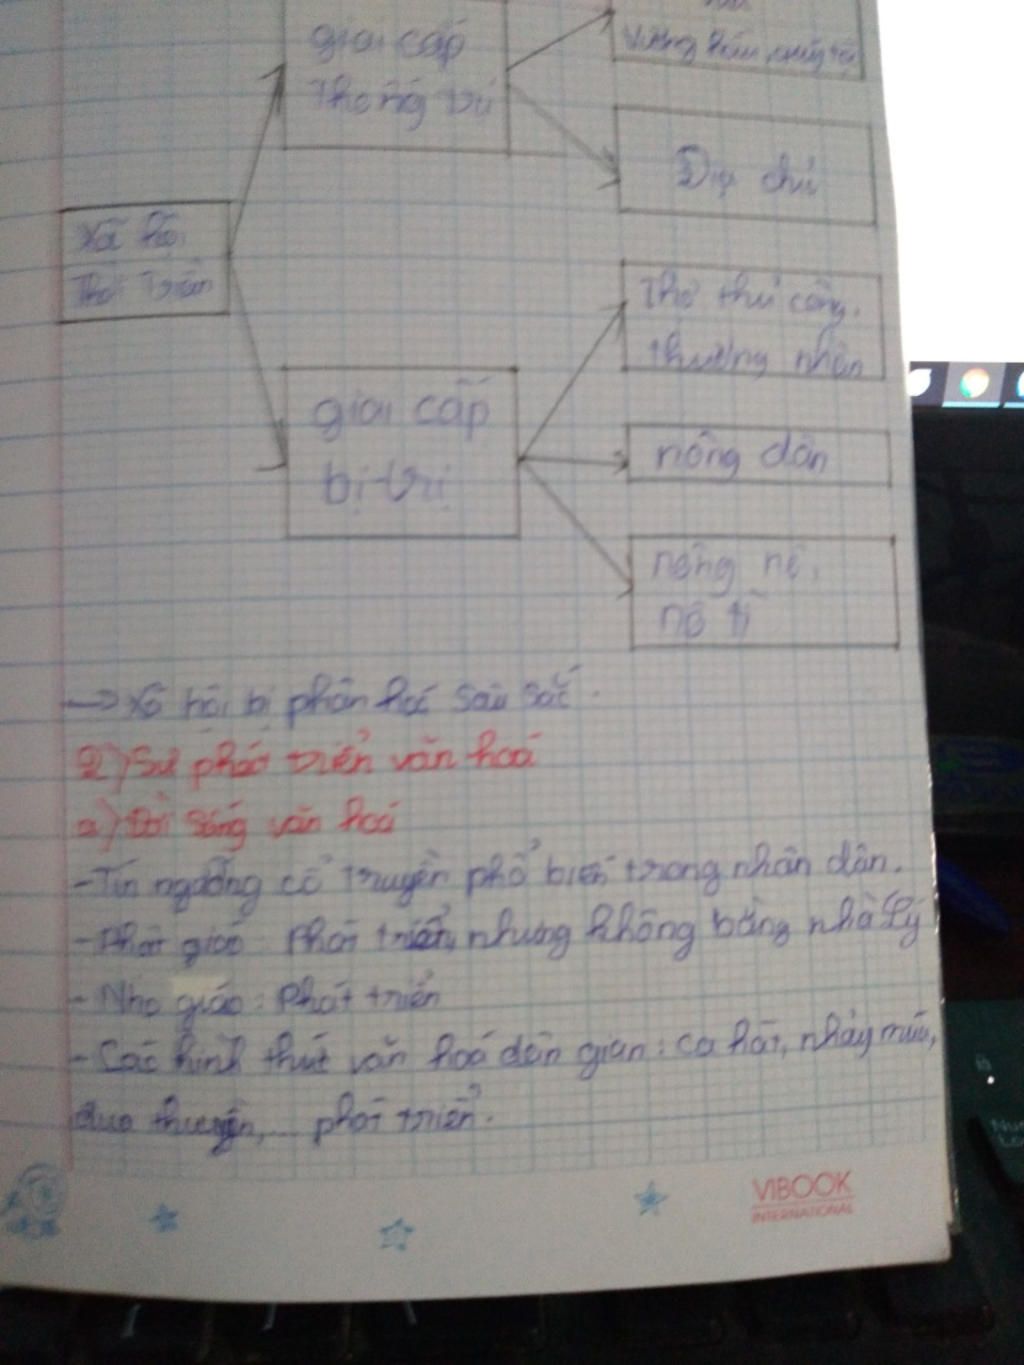 giai cấp
Thống trị
Vương hầu, quý tộc
Địa chủ
Xã hội
Thời Trần
Thợ thủ công,
thương nhân
giai cấp
bị trị
nông dân
nông nô,
nô tì
→ Xã hội bị phân hoá sâu sắc.
2) Sự phát triển văn hoá
a) Đời sống văn hoá
- Tín ngưỡng cổ truyền phổ biến trong nhân dân.
- Phật giáo: Phát triển, nhưng không bằng nhà Lý
- Nho giáo: Phát triển
- Các hình thức văn hoá dân gian: ca hát, nhảy múa,
đua thuyền,... phát triển.
VIBOOK
INTERNATIONAL